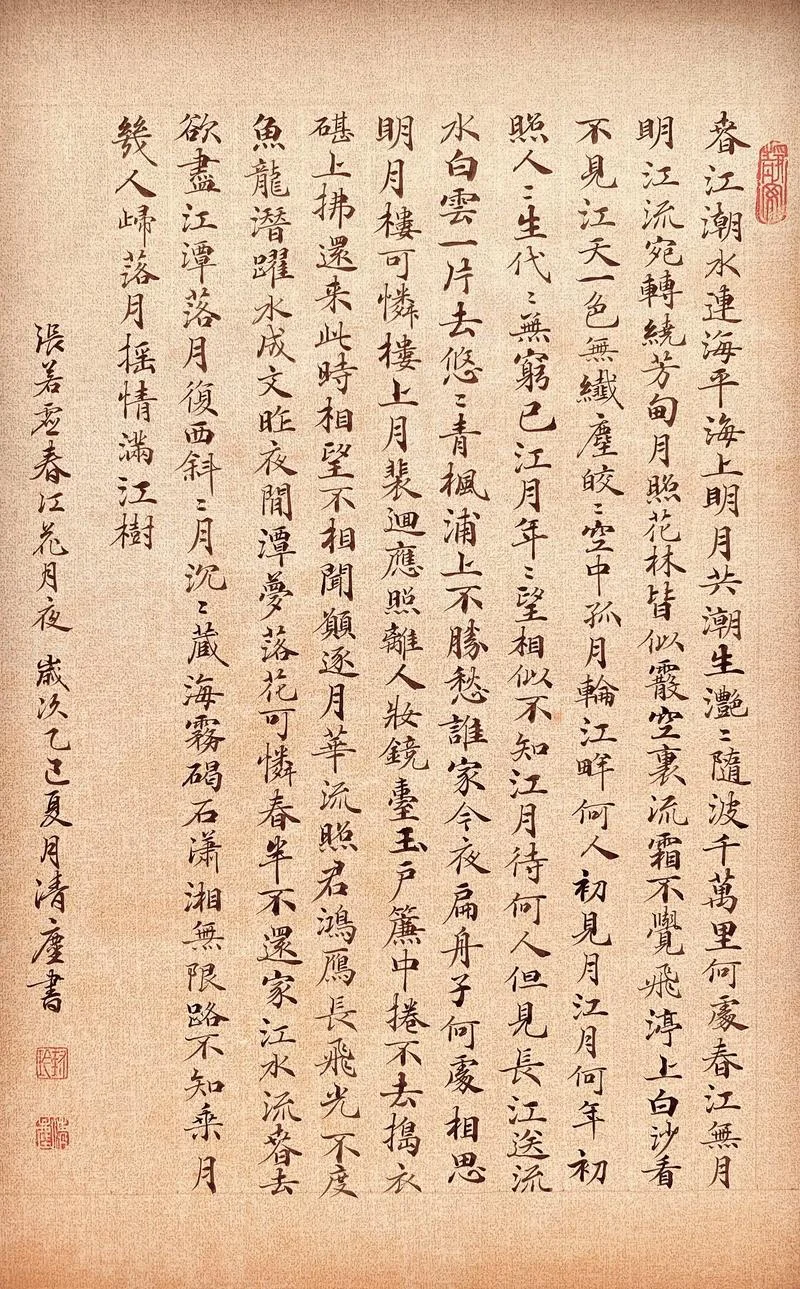 春江潮水連海平海上明月共潮生灩〻隨波千萬里何處春江無月
明江流宛轉繞芳甸月照花林皆似霰空裏流霜不覺飛渟上白沙看
不見江天一色無纖塵皎〻空中孤月輪江畔何人初見月江月何年初
照人〻生代〻無窮已江月年〻望相似不知江月待何人但見長江送流
水白雲一片去悠〻青楓浦上不勝愁誰家今夜扁舟子何處相思
明月樓可憐樓上月裴迴應照離人妝鏡臺玉戶簾中捲不去搗衣
碪上拂還来此時相望不相聞願逐月華流照君鴻雁長飛光不度
魚龍潛躍水成文昨夜閒潭夢落花可憐春半不還家江水流春去
欲盡江潭落月復西斜〻月沉〻藏海霧碣石瀟湘無限路不知乘月
幾人歸落月搖情滿江樹
張若虛春江花月夜 歲次乙巳夏月清塵書